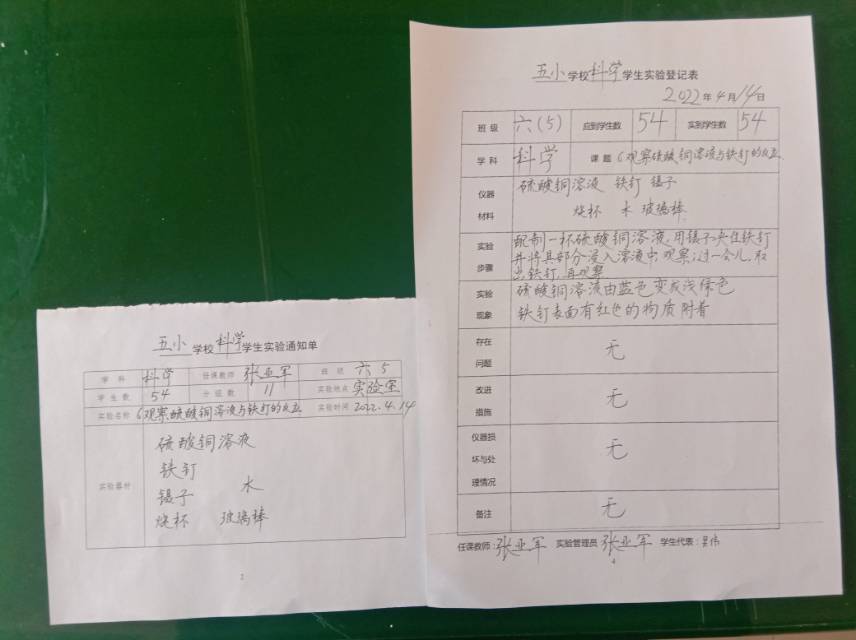 五小学校科学学生实验通知单
学科 科学 任课教师 张亚军 班级 六5
学生数 54 分组数 11 实验地点 实验室
实验名称 6观察硫酸铜溶液与铁钉的反应 实验时间 2022.4.14
实验器材
硫酸铜溶液
铁钉
镊子 水
烧杯 玻璃棒
2
五小学校科学学生实验登记表
2022年4月14日
班级 六(5) 应到学生数 54 实到学生数 54
学科 科学 课题 6观察硫酸铜溶液与铁钉的反应
仪器材料
硫酸铜溶液 铁钉 镊子
烧杯 水 玻璃棒
实验步骤
配制一杯硫酸铜溶液,用镊子夹住铁钉
并将其部分浸入溶液中,观察;过一会儿,取
出铁钉,再观察
实验现象
硫酸铜溶液由蓝色变成浅绿色
铁钉表面有红色的物质附着
存在问题 无
改进措施 无
仪器损坏与处理情况 无
备注 无
任课教师:张亚军 实验管理员 张亚军 学生代表:吴伟
4